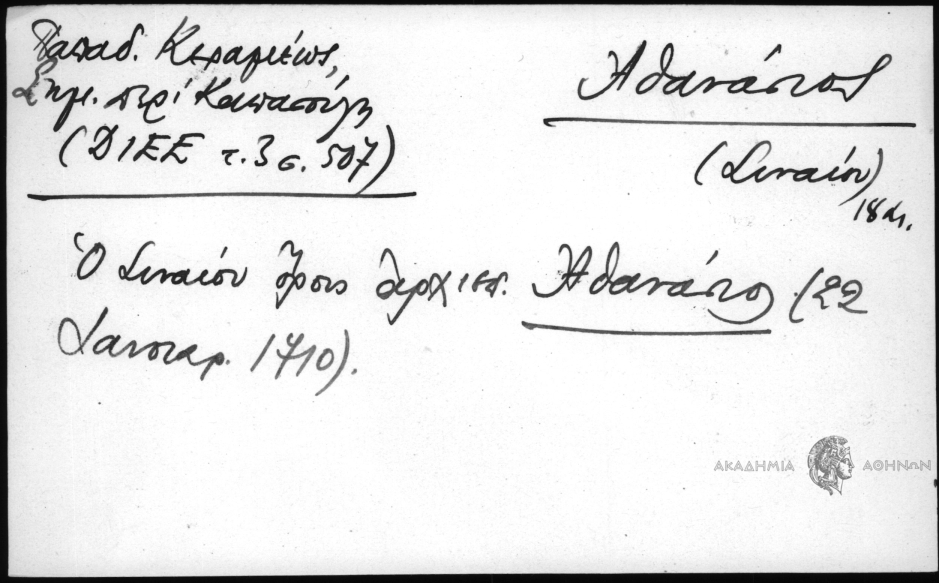 Παπαδ. Κεραμέως,
Σημ. περί Καπασούλη
(ΔΙΕΕ τ. 3 σ. 507)
Ἀθανάσιος
(Σιναίου)
18 αι.
Ὁ Σιναίου ὄρους ἀρχιεπ. Ἀθανάσιος (22
Ιανουαρ. 1710).
ΑΚΑΔΗΜΙΑ ΑΘΗΝΩΝ